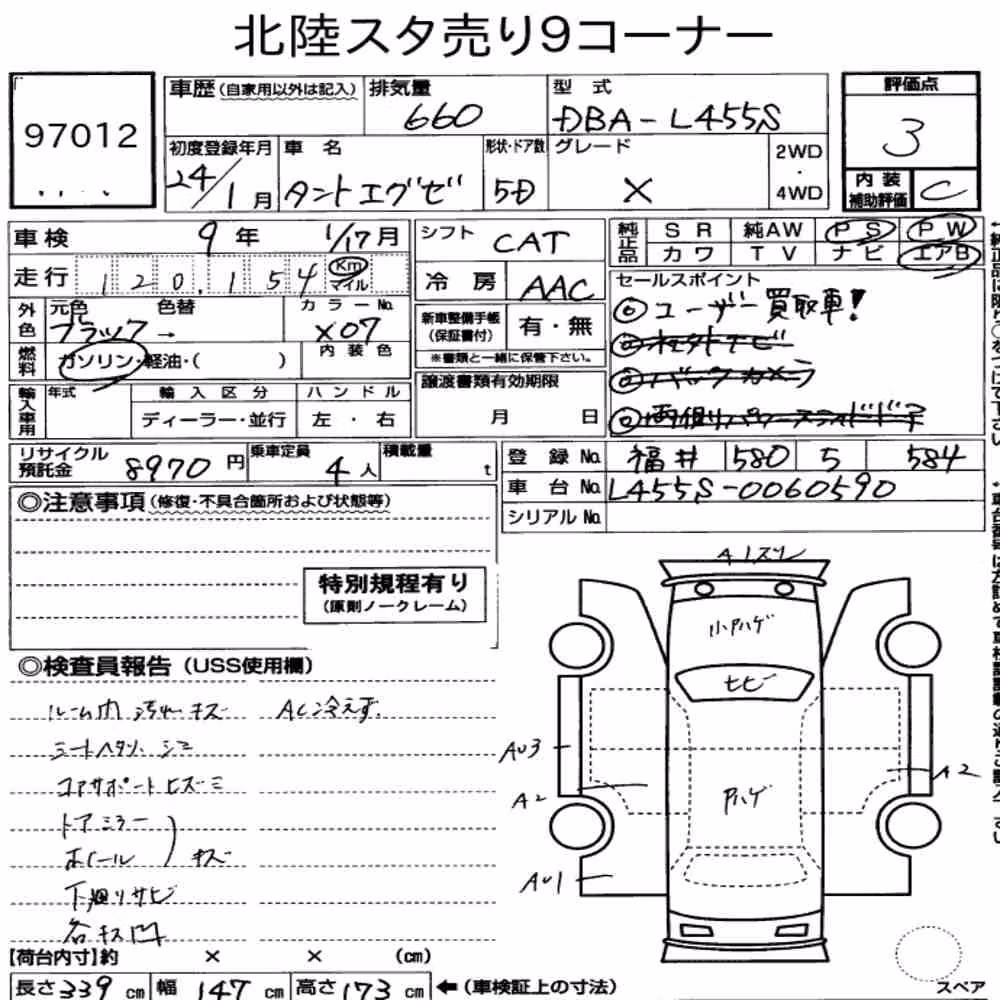 北陸スタ売り9コーナー
97012
車歴(自家用以外は記入) 排気量 660 型式 DBA-L455S 評価点 3
初度登録年月 24/1月 車名 タントエグゼ 形状・ドア数 5D グレード X 2WD・4WD
内装補助評価 C
車検 9年 1/17月 シフト CAT 純正品 SR 純AW PS PW
カワ TV ナビ エアB
走行 120,154 Km マイル 冷房 AAC
セールスポイント
◎ユーザー買取車!
外色 元色 ブラック→ 色替 カラーNo. X07 新車整備手帳(保証書付) 有・無
◎社外ナビ
燃料 ガソリン・軽油・( ) 内装色 ※書類と一緒に保管下さい。
◎バックカメラ
輸入車用 年式 輸入区分 ハンドル 譲渡書類有効期限
◎両側パワースライドドア
ディーラー・並行 左・右 月 日
リサイクル預託金 8970円 乗車定員 4人 積載量 t 登録No. 福井 580 5 584
車台No. L455S-0060590
シリアルNo.
◎注意事項(修復・不具合箇所および状態等)
特別規程有り
(原則ノークレーム)
◎検査員報告(USS使用欄)
ルーム内 汚れ キズ AC冷えず.
シートヘタリ シミ
コアサポートヒズミ
ドアミラー
ホイール)キズ
下廻りサビ
各キズ凹
A1スリ
小Pハゲ
ヒビ
AU3
A2
Pハゲ
A2
AU1
【荷台内寸】約 × × (cm)
長さ339cm 幅147cm 高さ173cm ←(車検証上の寸法)
スペア